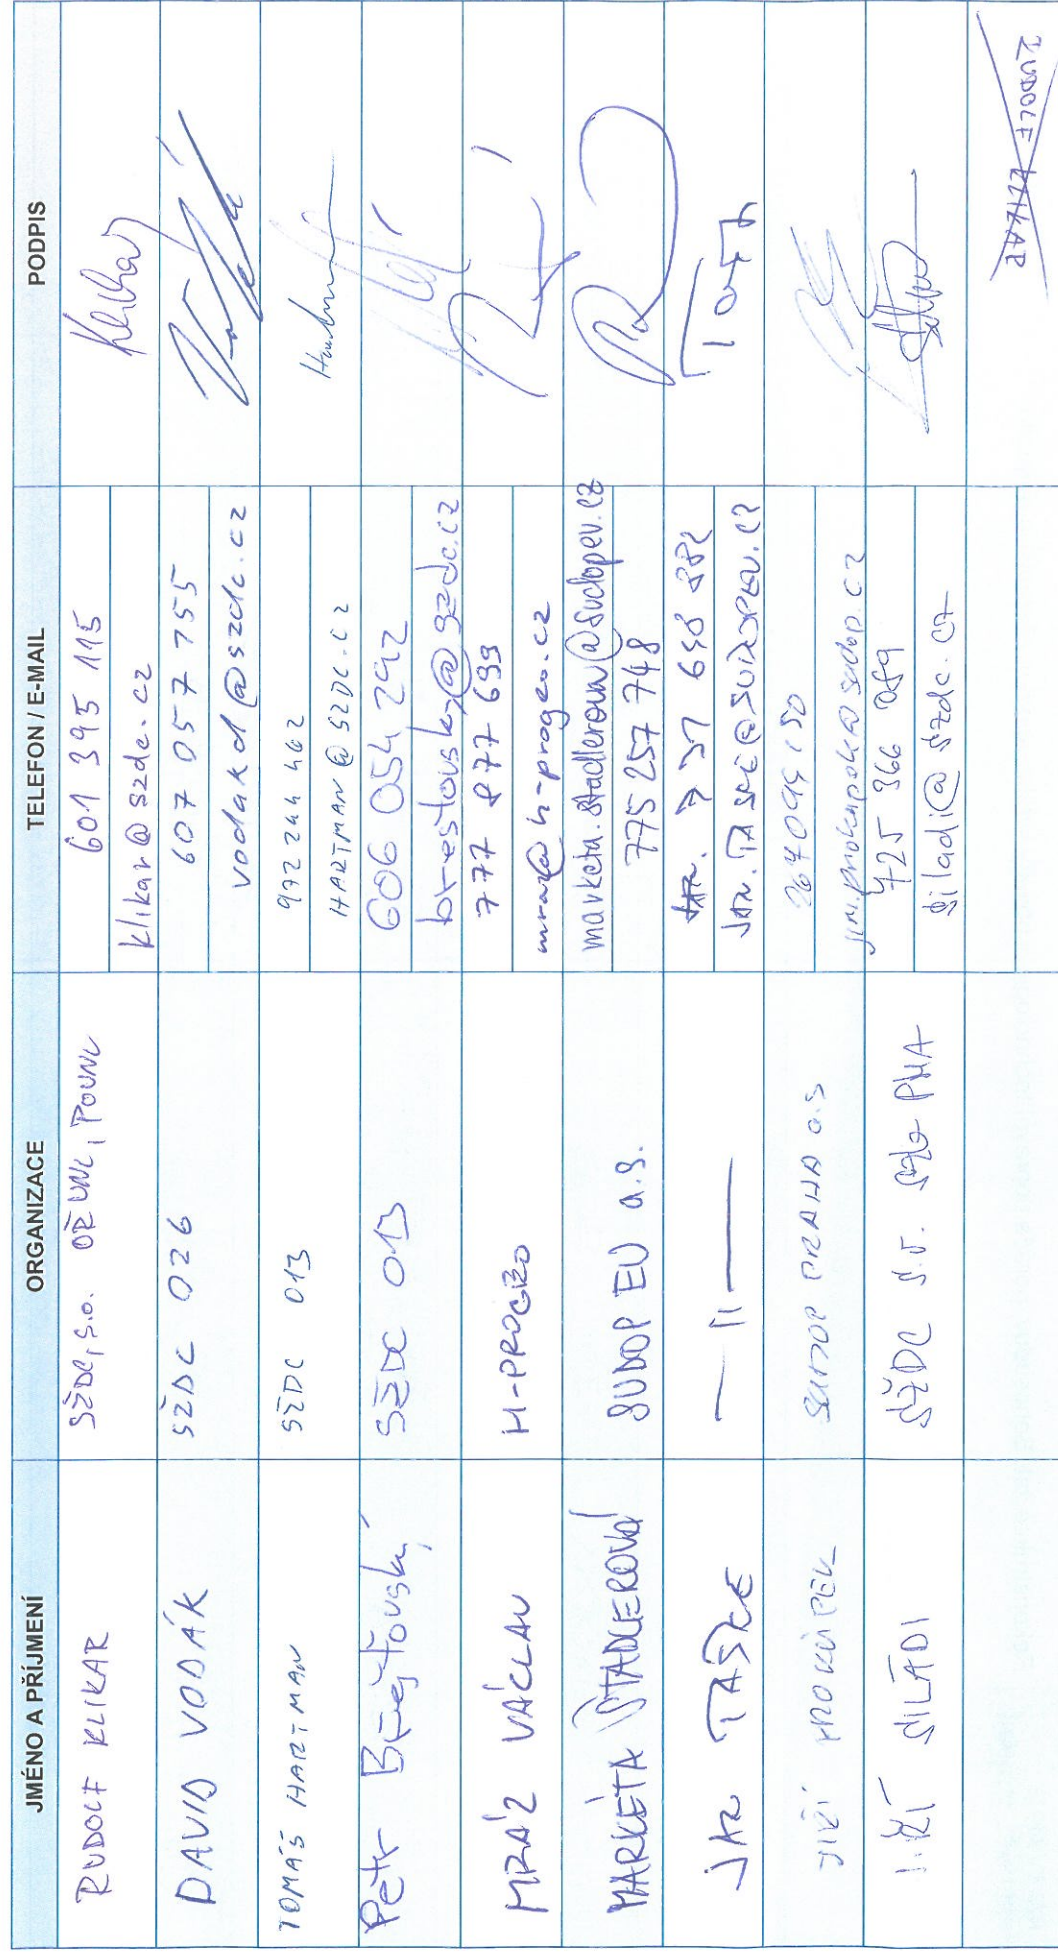 JMÉNO A PŘÍJMENÍ ORGANIZACE TELEFON / E-MAIL PODPIS
RUDOLF KLIKAR SŽDC, s.o. OŘ UNL, POUNL 601 395 115
klikar@szdc.cz
DAVID VODÁK SŽDC 026 607 057 755
vodakd@szdc.cz
TOMÁŠ HARTMAN SŽDC 013 972 244 462
HARTMAN@SZDC.CZ
Petr Břešťovský SŽDC 013 606 054 292
brestovsky@szdc.cz
MRÁZ VÁCLAV H-PROGEO 777 877 699
mraz@h-progeo.cz
MARKÉTA STADLEROVÁ SUDOP EU a.s. marketa.stadlerova@sudopeu.cz
775 257 748
JAN TAŠKE — 11 —
JAN.TASKE@SUDOPEU.CZ
JIŘÍ PROKŮPEK SUDOP PRAHA a.s 267 094 150
jiri.prokupek@sudop.cz
JIŘÍ SILÁDI SŽDC s.o. PHA 725 366 089
siladi@szdc.cz
RUDOLF KLIKAR